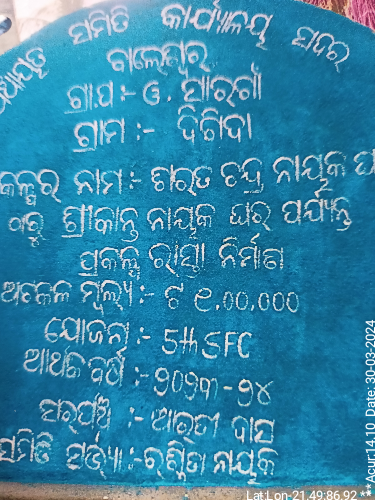 ପଞ୍ଚାୟତ ସମିତି କାର୍ଯ୍ୟାଳୟ ସଦର
ବାଲେଶ୍ୱର
ଗ୍ରା.ପ :- ଓ. ସାରଗାଁ
ଗ୍ରାମ :- ଦିଗିଦା
ନାମ :- ଶରତ ଚନ୍ଦ୍ର ନାୟକ
ଠାରୁ ଶ୍ରୀକାନ୍ତ ନାୟକ ଘର ପର୍ଯ୍ୟନ୍ତ
ପ୍ରକଳ୍ପ ରାସ୍ତା ନିର୍ମାଣ
ଅଟକଳ ମୂଲ୍ୟ :- ଟ ୧.00,000
ଯୋଜନା :- 5th SFC
ଆର୍ଥିକ ବର୍ଷ :- ୨୦୨୩-୨୪
ସରପଞ୍ଚ :- ଆରତୀ ଦାସ
ସମିତି ସଭ୍ୟା :- ରଶ୍ମିତା ନାୟକ
Lat:Lon-21.49:86.92 **
**Acur:14.10 Date: 30-03-2024